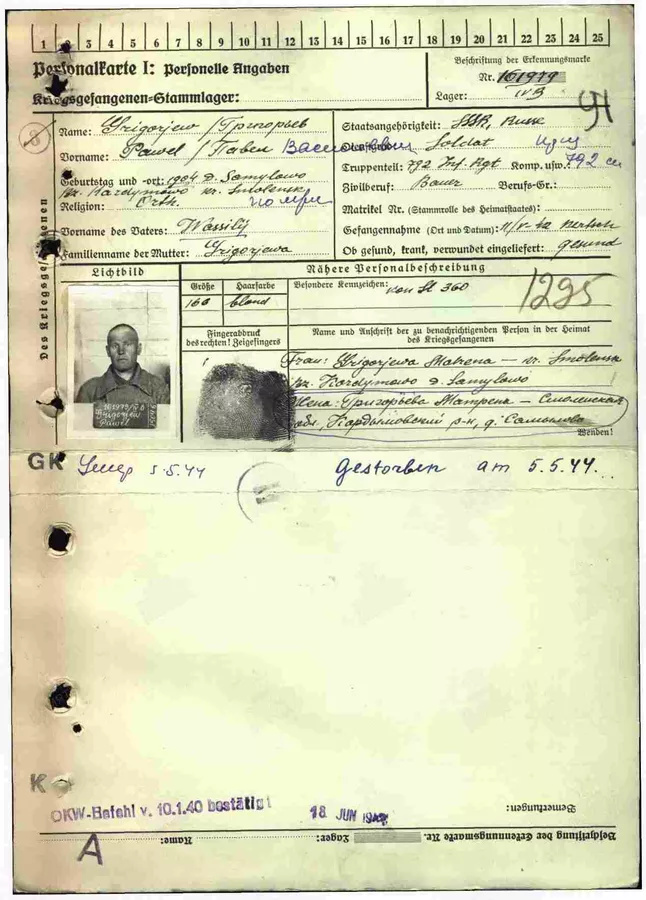 1 2 3 4 5 6 7 8 9 10 11 12 13 14 15 16 17 18 19 20 21 22 23 24 25
Personalkarte I: Personelle Angaben
Beschriftung der Erkennungsmarke
Nr. 161979
Kriegsgefangenen-Stammlager:
Lager: IV B
Des Kriegsgefangenen
Name: Grigorjew / Григорьев
Vorname: Pawel / Павел Васильевич
Geburtstag und -ort: 1904 d. Samylowo
rz. Kardymowo kr. Smolensk
Religion: Orth.
Vorname des Vaters: Wassilij
Familienname der Mutter: Grigorjewa
Staatsangehörigkeit: SSR, Russe
Dienstgrad: Soldat
Truppenteil: 792 Inf. Rgt Komp. usw.: 792 сп
Zivilberuf: Bauer Berufs-Gr.:
Matrikel Nr. (Stammrolle des Heimatstaates):
Gefangennahme (Ort und Datum): 11/V-42 Kertsch
Ob gesund, krank, verwundet eingeliefert: gesund
Lichtbild
Nähere Personalbeschreibung
Größe Haarfarbe Besondere Kennzeichen: von St 360
166 blond
1295
Fingerabdruck
des rechten! Zeigefingers
Name und Anschrift der zu benachrichtigenden Person in der Heimat
des Kriegsgefangenen
Frau: Grigorjewa Matrena – kr. Smolensk
rz. Kardymowo d. Samylowo
Жена: Григорьева Матрена – Смоленская
обл. Кардымовский р-н, д. Самылова
Wenden!
Grigorjew
Pawel
GK Умер 5.5.44 Gestorben am 5.5.44...
K
OKW-Befehl v. 10.1.40 bestätigt
18 JUN
Bemerkungen:
A
Name: Lager: Beschriftung der Erkennungsmarke Nr.